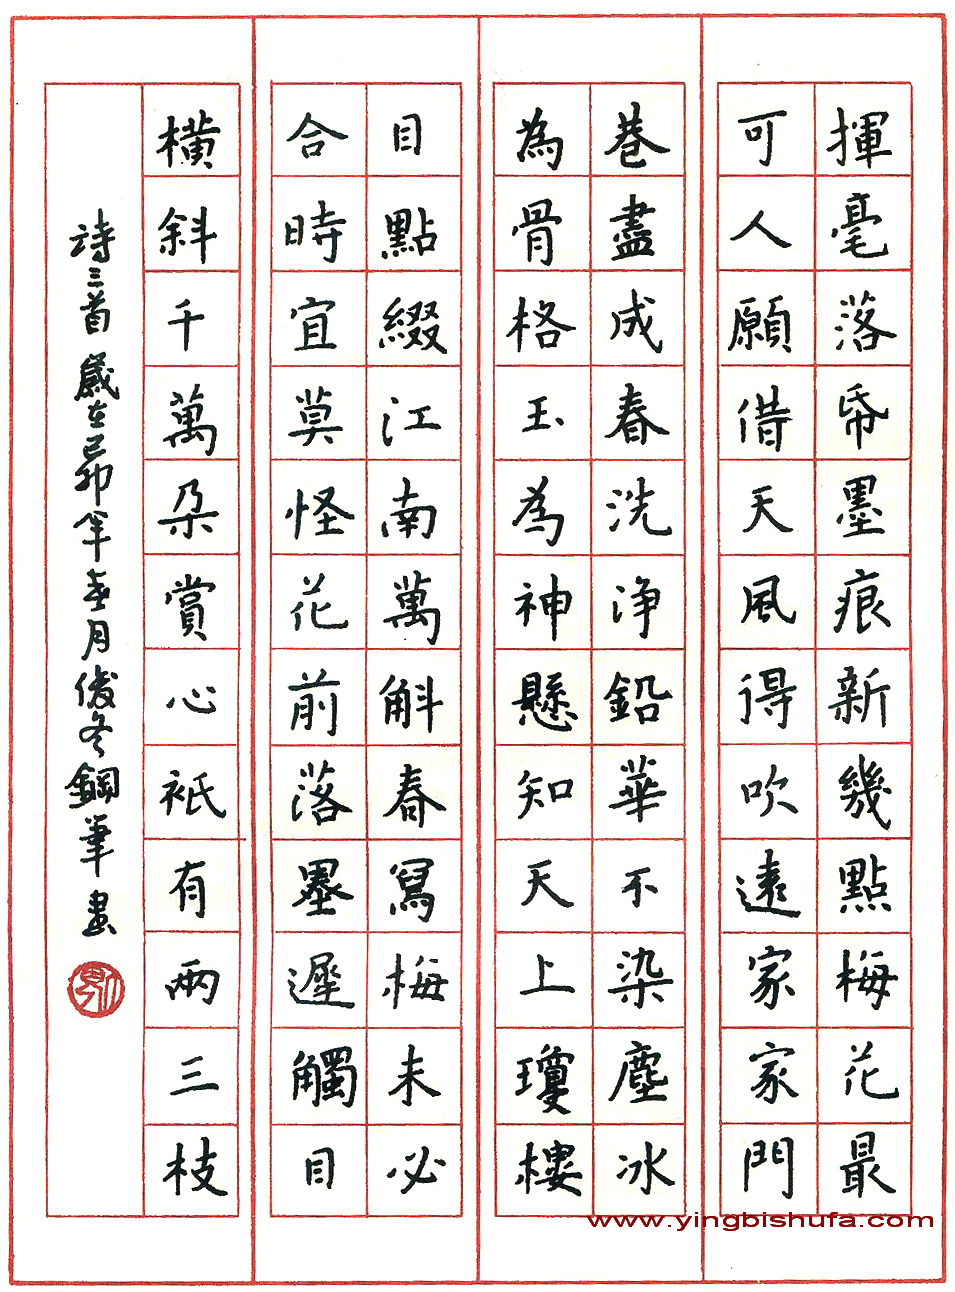 揮毫落帋墨痕新幾點梅花最
可人願借天風得吹遠家家門
巷盡成春洗浄鉛華不染塵冰
為骨格玉為神懸知天上瓊樓
目點綴江南萬斛春寫梅未必
合時宜莫怪花前落墨遲觸目
橫斜千萬朵賞心衹有兩三枝
詩三首歲在己卯年春月冬鋼筆書
www.yingbishufa.com